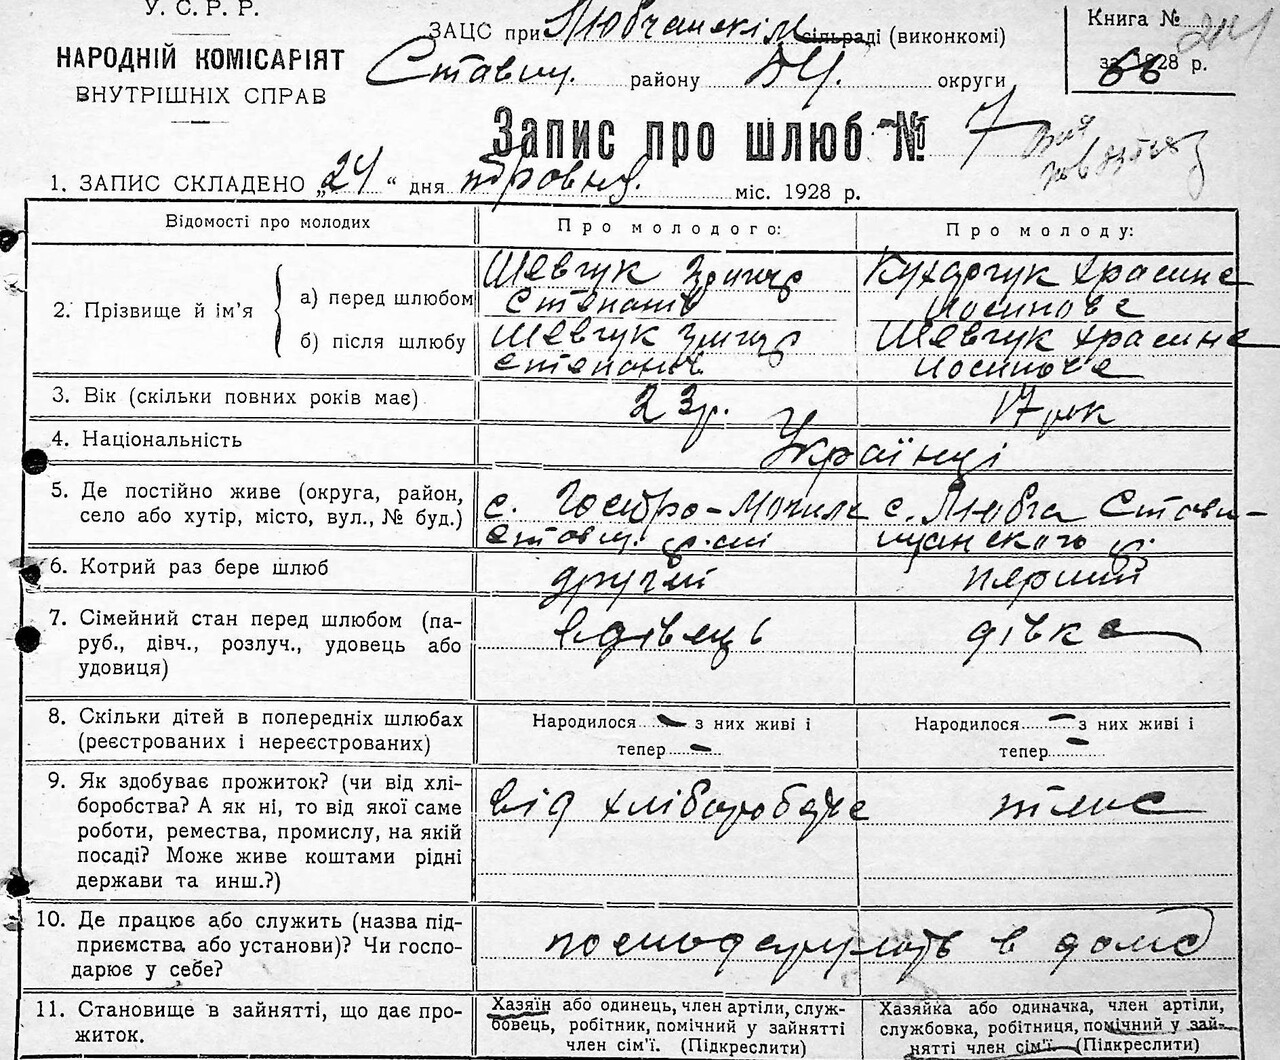 У. С. Р. Р.
НАРОДНІЙ КОМІСАРІЯТ
ВНУТРІШНІХ СПРАВ
ЗАЦС при Любчанскім сільраді (виконкомі)
Ставищ. району БЦ. округи
Книга № 241
за 1928 р.
66
Запис про шлюб № 7
1. ЗАПИС СКЛАДЕНО „24“ дня травня міс. 1928 р.
Відомості про молодих
Про молодого:
Про молоду:
2. Прізвище й ім'я
а) перед шлюбом
Шевчук Гриць
Степанів
Кухарчук
Йосипове
б) після шлюбу
Шевчук Гриць
Степанів
Шевчук
Йосипове
3. Вік (скільки повних років має)
23 р.
17 рок
4. Національність
Українці
5. Де постійно живе (округа, район,
село або хутір, місто, вул., № буд.)
с. Гостро-Могила
Ставищ. р-ні
с. Любча Стави-
щанского р.
6. Котрий раз бере шлюб
другий
перший
7. Сімейний стан перед шлюбом (па-
руб., дівч., розлуч., удовець або
удовиця)
вдівець
дівка
8. Скільки дітей в попередніх шлюбах
(реєстрованих і нереєстрованих)
Народилося — з них живі і
тепер —
Народилося — з них живі і
тепер —
9. Як здобуває прожиток? (чи від хлі-
боробства? А як ні, то від якої саме
роботи, ремества, промислу, на якій
посаді? Може живе коштами рідні
держави та инш.?)
від хліборобства
10. Де працює або служить (назва під-
приємства або установи)? Чи госпо-
дарює у себе?
господарують в дома
11. Становище в зайнятті, що дає про-
житок.
Хазяїн або одинець, член артіли, служ-
бовець, робітник, помічний у зайнятті
член сім'ї. (Підкреслити)
Хазяйка або одиначка, член артіли,
службовка, робітниця, помічний у зай-
нятті член сім'ї. (Підкреслити)